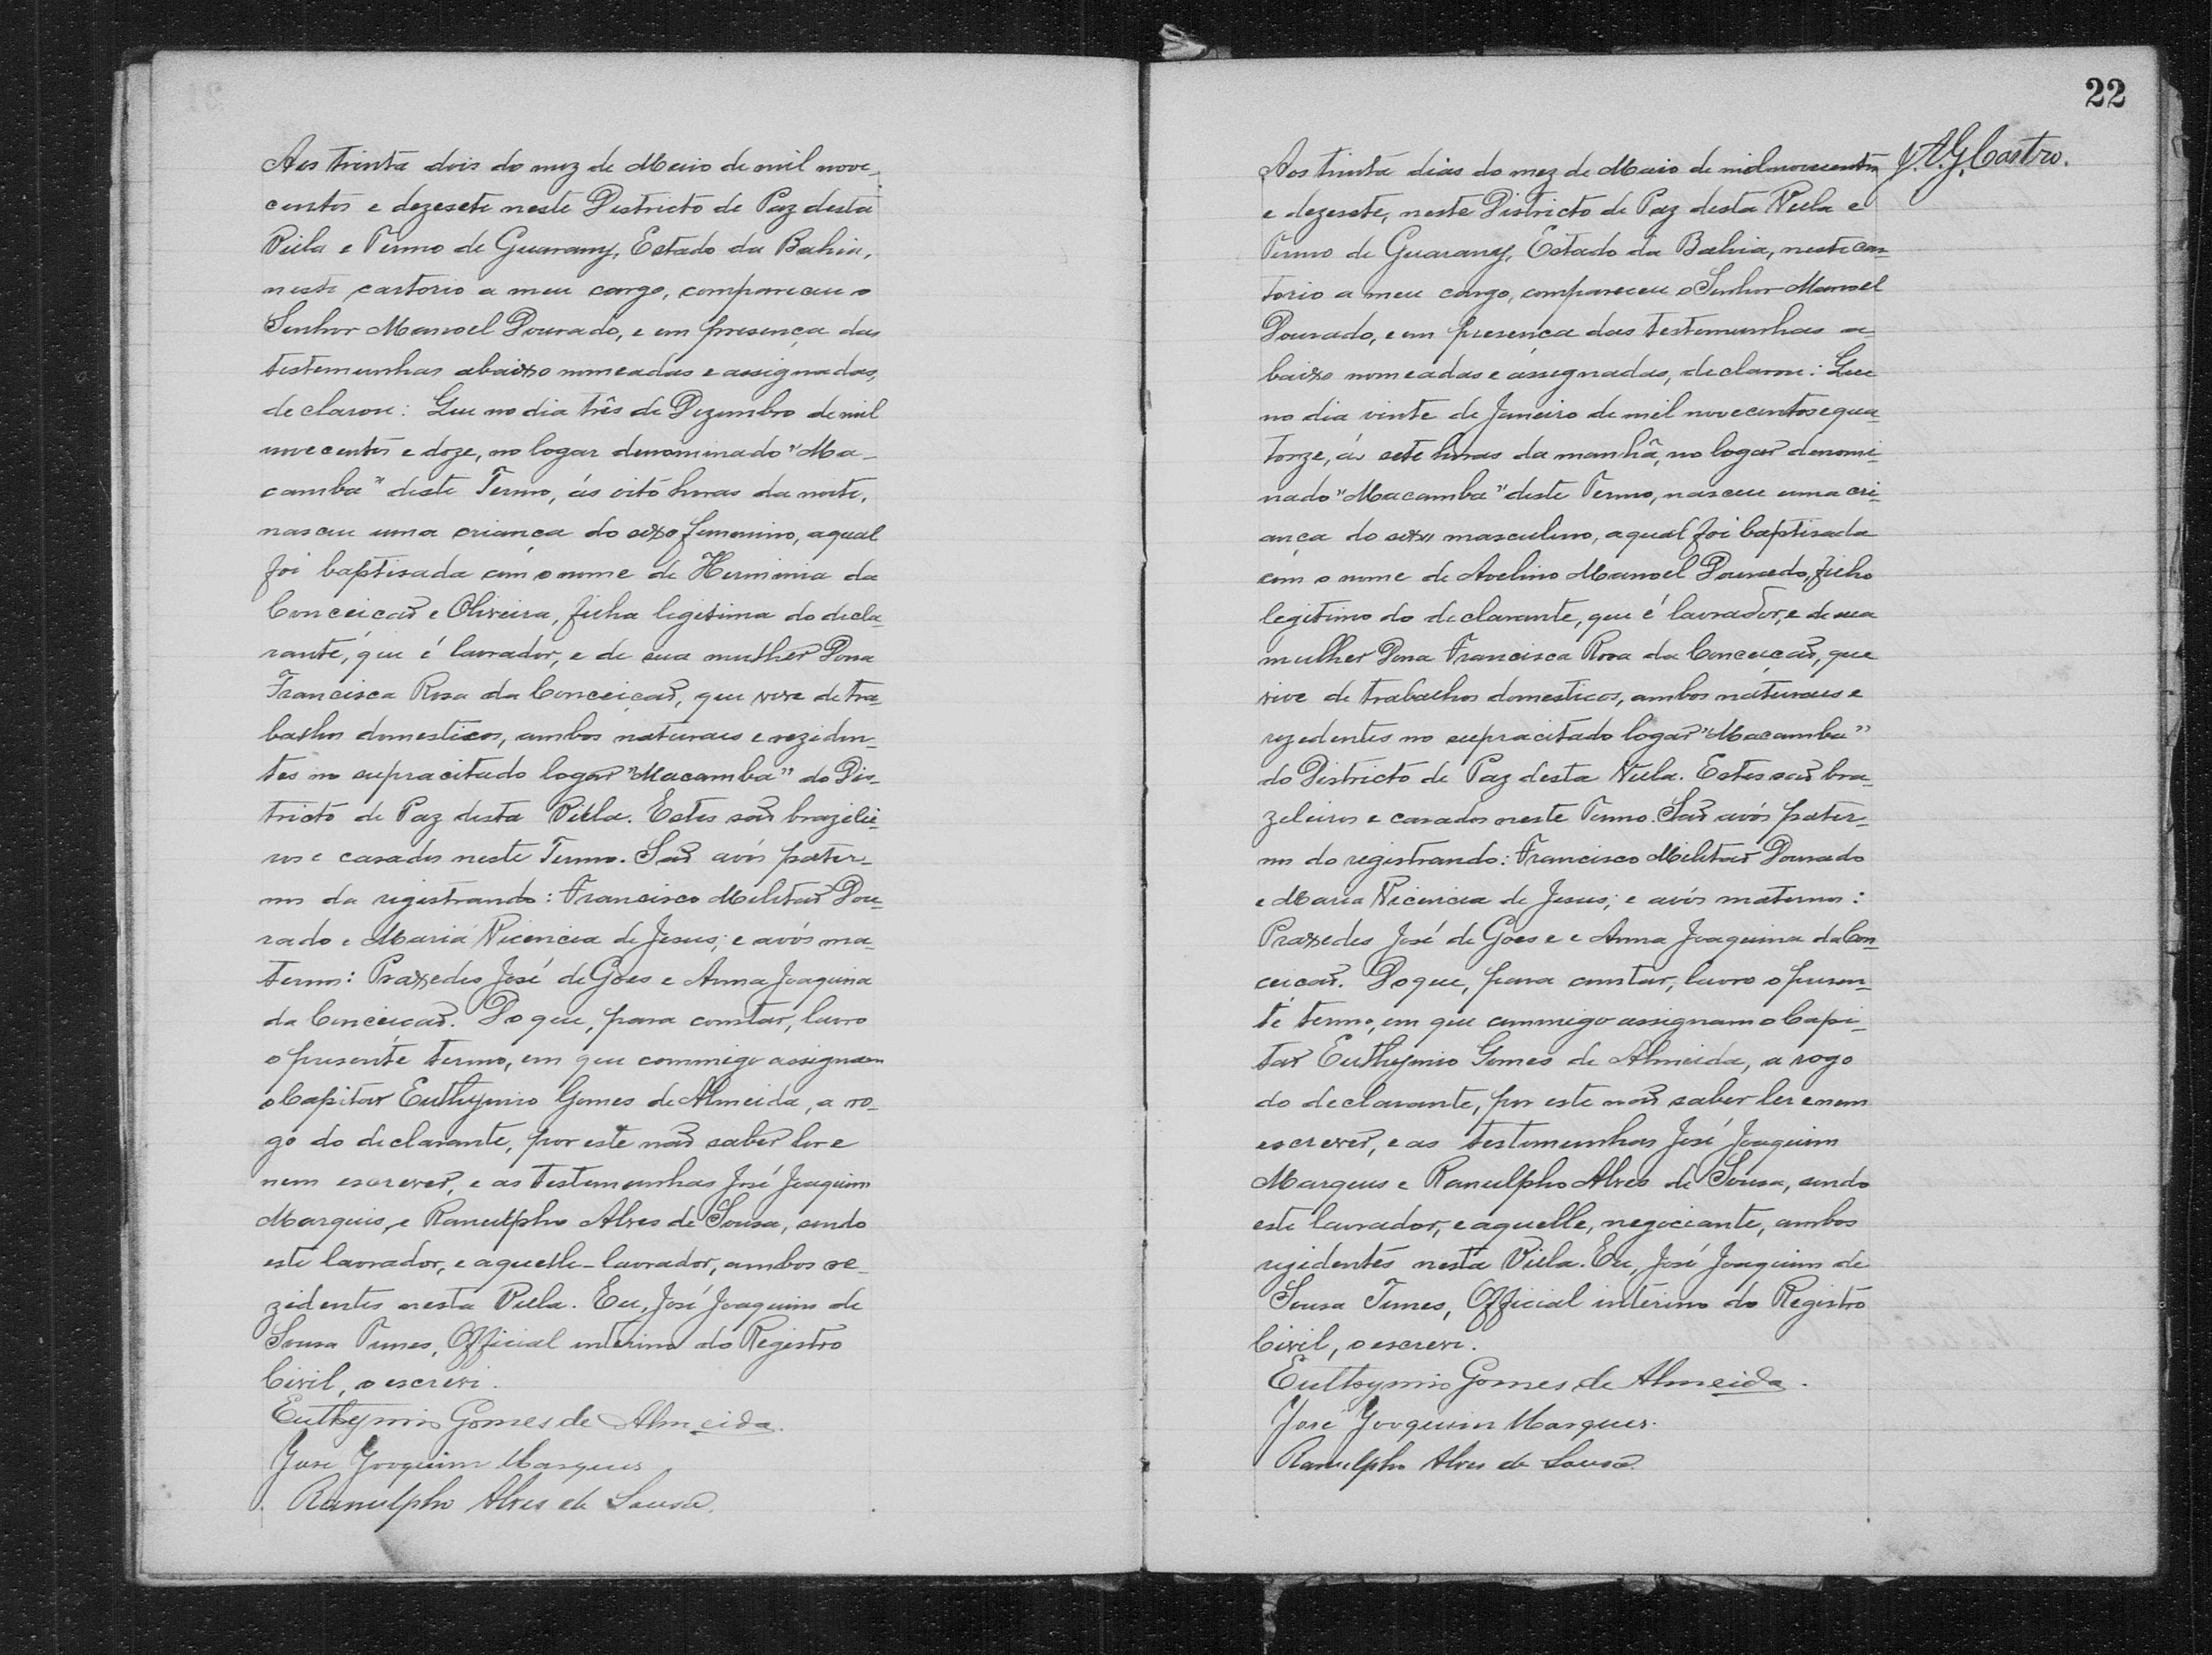 Aos trinta dois do mez de Maio de mil nove-
centos e dezesete neste Districto de Paz desta
Villa e Termo de Guarany, Estado da Bahia,
neste cartorio a meu cargo, compareceu o
Senhor Manoel Dourado, e em presença das
testemunhas abaixo nomeadas e assignadas,
declarou: Que no dia três de Dezembro de mil
novecentos e doze, no logar denominado "Ma-
camba" deste Termo, ás oito horas da noite,
nasceu uma criança do sexo femenino, a qual
foi baptisada com o nome de Herminia da
Conceicaõ e Oliveira, filha legitima do decla-
rante, que é lavrador, e de sua mulher Dona
Francisca Rosa da Conceiçaõ, que vive de tra-
balhos domesticos, ambos naturaes e reziden-
tes no supracitado logar "Macamba" do Dis-
tricto de Paz desta Villa. Estes saõ brazilei-
ros e casados neste Termo. Saõ avós pater-
nos da registrando: Francisco Militaõ Dou-
rado e Maria Vicencia de Jesus; e avós ma-
ternos: Praxedes José de Góes e Anna Joaquina
da Conceiçaõ. Do que, para constar, lavro
o presente termo, em que commigo assignam
o Capitaõ Euthymio Gomes de Almeida, a ro-
go do declarante, por este naõ saber ler e
nem escrever, e as testemunhas José Joaquim
Marques, e Ranulpho Alves de Sousa, sendo
este lavrador, e aquelle-lavrador, ambos re-
zidentes nesta Villa. Eu, José Joaquim de
Sousa Tunes, Official interino do Registro
Civil, o escrevi.
Euthymio Gomes de Almeida.
José Joaquim Marques
Ranulpho Alves de Sousa.
22
J. A. G. Castro.
Aos trinta dias do mez de Maio de mil novecentos
e dezesete, neste Districto de Paz desta Villa e
Termo de Guarany, Estado da Bahia, neste car-
torio a meu cargo, compareceu o Senhor Manoel
Dourado, e em presença das testemunhas a-
baixo nomeadas e assignadas, declarou: Que
no dia vinte de Janeiro de mil novecentos e qua-
torze, ás sete horas da manhã, no logar denomi-
nado "Macamba" deste Termo, nasceu uma cri-
ança do sexo masculino, a qual foi baptisada
com o nome de Avelino Manoel Dourado, filho
legitimo do declarante, que é lavrador, e de sua
mulher Dona Francisca Rosa da Conceiçaõ, que
vive de trabalhos domesticos, ambos naturaes e
rezidentes no supracitado logar "Macamba"
do Districto de Paz desta Villa. Estes saõ bra-
zileiros e casados neste Termo. Saõ avós pater-
nos do registrando: Francisco Militaõ Dourado
e Maria Vicencia de Jesus; e avós maternos:
Praxedes José de Goes e e Anna Joaquina da Con-
ceiçaõ. Do que, para constar, lavro o presen-
te termo, em que commigo assignam o Capi-
taõ Euthymio Gomes de Almeida, a rogo
do declarante, por este naõ saber ler e nem
escrever, e as testemunhas José Joaquim
Marques e Ranulpho Alves de Sousa, sendo
este lavrador, e aquelle, negociante, ambos
rezidentes nesta Villa. Eu, José Joaquim de
Sousa Tunes, Official interino do Registro
Civil, o escrevi.
Euthymio Gomes de Almeida.
José Joaquim Marques.
Ranulpho Alves de Sousa.